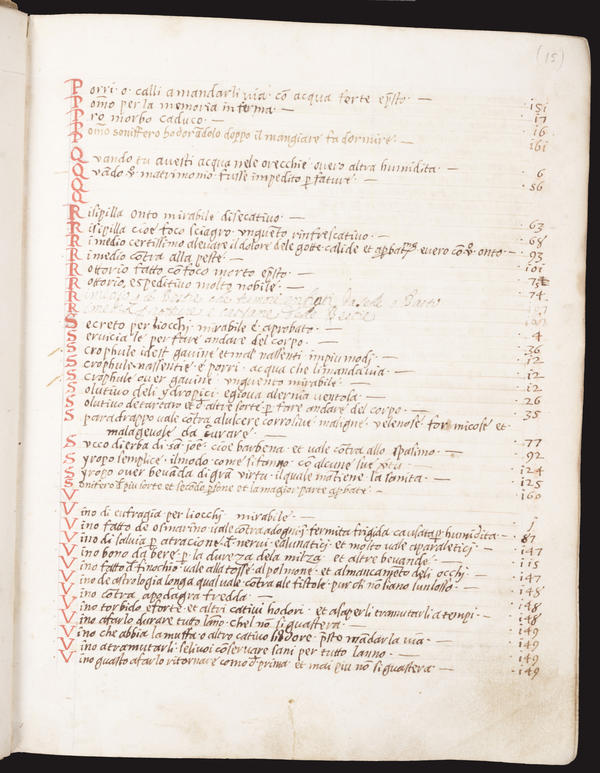 (15)
Porri o calli a mandarli via cõ acqua forte ep̃sto — 151
Pomo per la memoria inferma — 17
Pro morbo caduco — 16
Pomo sonniffero hodorãdolo doppo il mangiare fa dormire — 161
Quando tu avesti acqua nele orecchie overo altra humidita — 6
Quãdo matrimonio fusse impedito p̱ fature — 56
Q
Risipilla onto mirabile disecativo — 63
Risipilla cioe foco sciagro unguẽto rinfrescativo — 68
Rimedio certissimo alevare il dolore dele gotte calide et overo onto — 93
Rimedio cõtra alla peste — 101
Rottorio fatto cõ foco morto ep̃sto — 73
Rottorio, espeditivo molto nobile — 74
R
R
Secreto per liocchi mirabile e aprobato — 4
Servicia le per fare andare del corpo — 36
Scrophule idest gavine et mal nassenti impiu modi — 12
Scrophule nassentie e porri acqua che li manda via — 12
Scrophule over gavine unguento mirabile — 12
Solutivo deli ydropici egiova alerma ventola — 26
Solutivo de tartaro et altre sorte p̱ fare andare del corpo — 35
Sparadrappo vale cõtra alulcere corrosive maligne velenose formicole et
malagevole da curare — 77
Succo di erba di sã joẽ cioe barbena et vale cõtra allo spasimo — 92
Syropo semplice il modo come si fãno cõ alcune sue ṽtu — 124
Syropo over bevãda di grã virtu il quale mãtiene la sanita — 125
Sonifero piu sorte et secõdo p̱sone et la magior parte ap̱bate — 160
V
Vino di eufragia per liocchi mirabile — 1
Vino fatto de osmarino vale cõtra adogni jnfermita frigida causata p̱ humidita — 81
Vino di salvia p̱ atracione nervi ealunatici et molto vale aparaletici — 147
Vino bono da bere p̱ la dureza dela milza et altre bevande — 115
Vino fatto finochio vale alla tosse al polmone et almancamẽto deli occhi — 147
Vino de astrologia longa qual vale cõtra ale fistole pur ch nõ siano lunlosso — 148
Vino cõtra apodagra fredda
Vino torbido eforte et altri cativi hodori et asaperli tramutarli a tempi — 148
Vino afarlo durare tutto lãno chel nõ si guastera — 148
Vino che abbia la muffa o altro cativo hodore p̃sto mãdarla via — 149
Vino atramutarli selivoi cõservare sani per tutto lanno — 149
Vino guasto afarlo ritornare como prima et mai piu nõ si guastera — 149